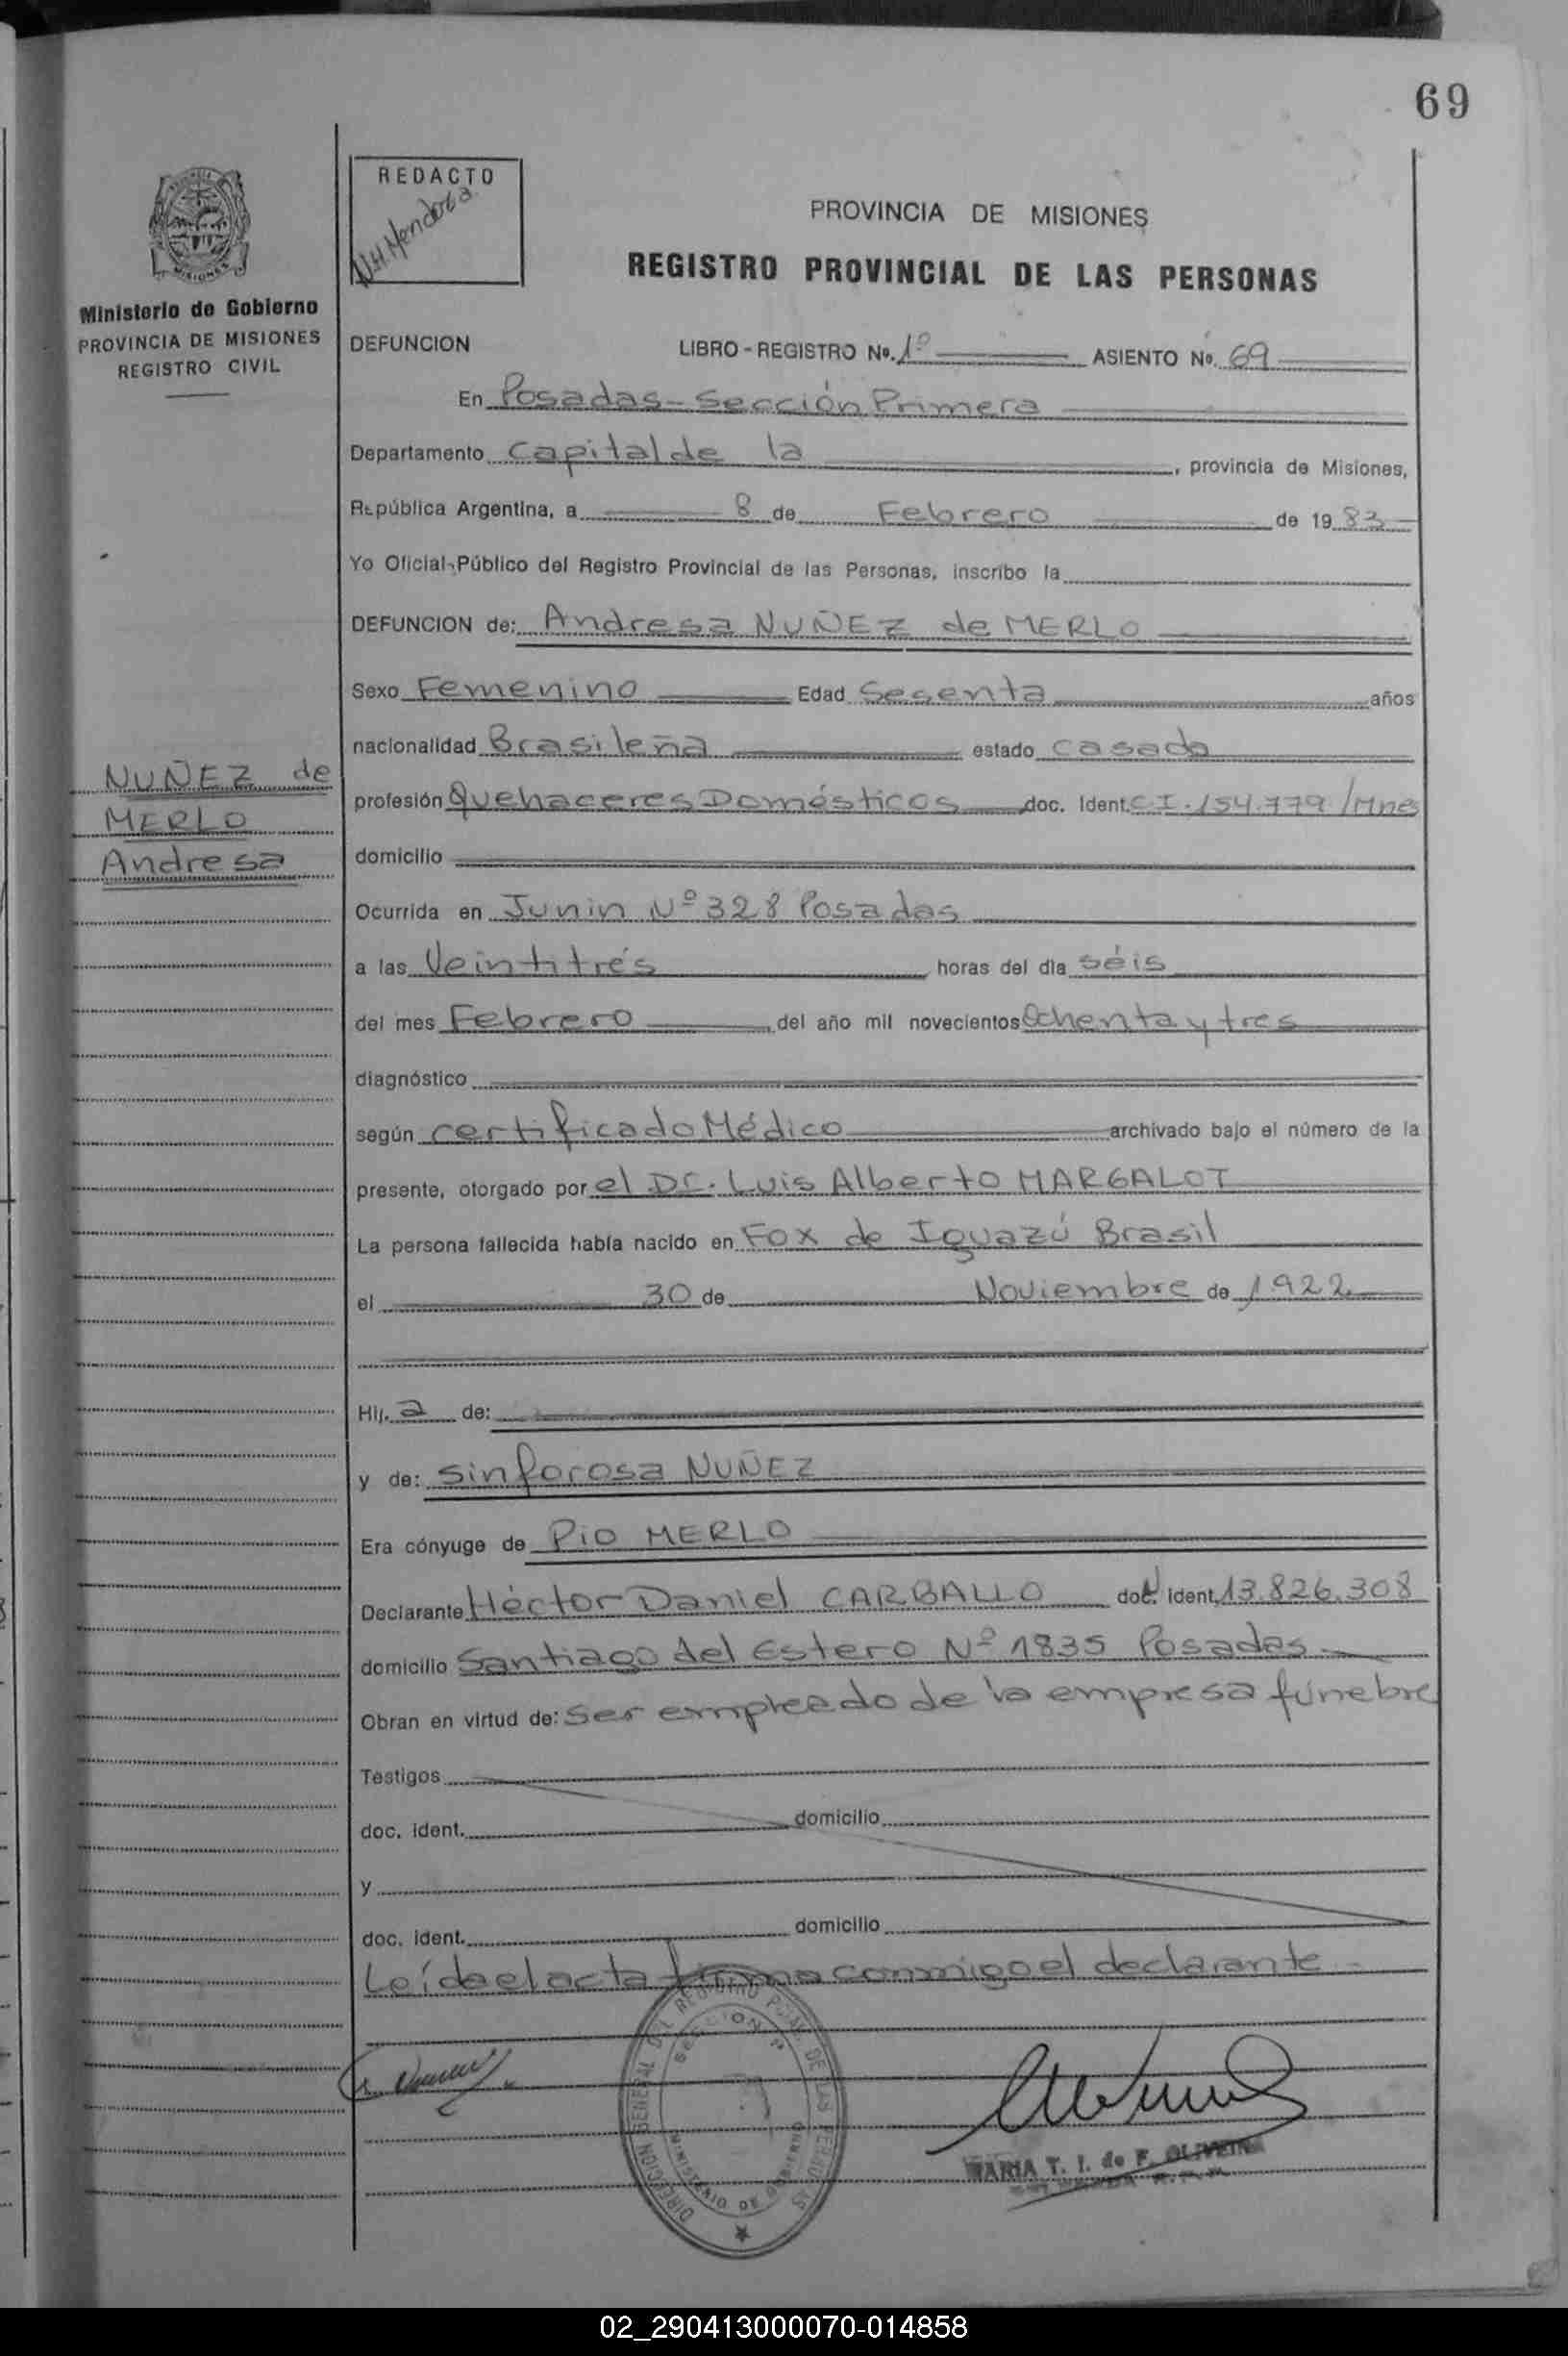 69
REDACTO
N.H. Mendoza
PROVINCIA DE MISIONES
REGISTRO PROVINCIAL DE LAS PERSONAS
MISIONES
Ministerio de Gobierno
PROVINCIA DE MISIONES
REGISTRO CIVIL
DEFUNCION LIBRO - REGISTRO No. 1º ASIENTO No. 69
En Posadas - Sección Primera
Departamento Capital de la , provincia de Misiones,
República Argentina, a 8 de Febrero de 19 83
Yo Oficial Público del Registro Provincial de las Personas, inscribo la
DEFUNCION de: Andresa NUÑEZ de MERLO
Sexo Femenino Edad Sesenta años
nacionalidad Brasileña estado casada
NUÑEZ de
MERLO
Andresa
profesión Quehaceres Domésticos doc. Ident. C.I. 154.779/Mnes
domicilio
Ocurrida en Junin Nº 328 Posadas
a las Veintitrés horas del dia séis
del mes Febrero del año mil novecientos Ochenta y tres
diagnóstico
según certificado Médico archivado bajo el número de la
presente, otorgado por el Dr. Luis Alberto MARGALOT
La persona fallecida había nacido en Fox de Iguazú Brasil
el 30 de Noviembre de 1.922
Hij. a de:
y de: Sinforosa NUÑEZ
Era cónyuge de Pio MERLO
Declarante Héctor Daniel CARBALLO doc. ident. 13.826.308
domicilio Santiago del Estero Nº 1835 Posadas
Obran en virtud de: Ser empleado de la empresa fúnebre
Testigos
doc. ident. domicilio
y
doc. ident. domicilio
Leída el acta firma conmigo el declarante
DIRECCION GENERAL DEL REGISTRO PCIAL. DE LAS PERSONAS
SECCION 1ª
MINISTERIO DE GOBIERNO
MARIA T. I. de F. OLIVEIRA
02_290413000070-014858